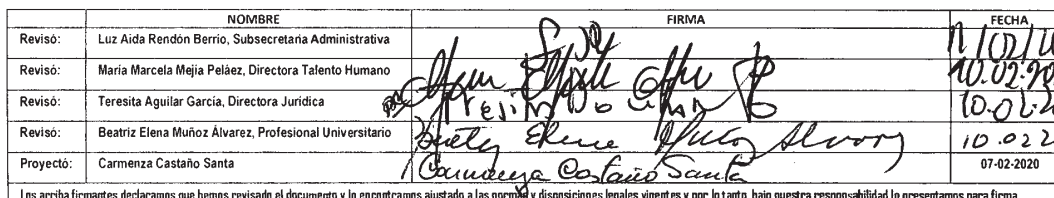 NOMBRE FIRMA FECHA
Revisó: Luz Aida Rendón Berrío, Subsecretaria Administrativa
Revisó: María Marcela Mejía Peláez, Directora Talento Humano 10.02.20
Revisó: Teresita Aguilar García, Directora Jurídica Teresita Aguilar 10.02.2
Revisó: Beatriz Elena Muñoz Álvarez, Profesional Universitario Beatriz Elena Muñoz Alvarez 10.022
Proyectó: Carmenza Castaño Santa Carmenza Castaño Santa 07-02-2020
Los arriba firmantes declaramos que hemos revisado el documento y lo encontramos ajustado a las normas y disposiciones legales vigentes y por lo tanto, bajo nuestra responsabilidad lo presentamos para firma.